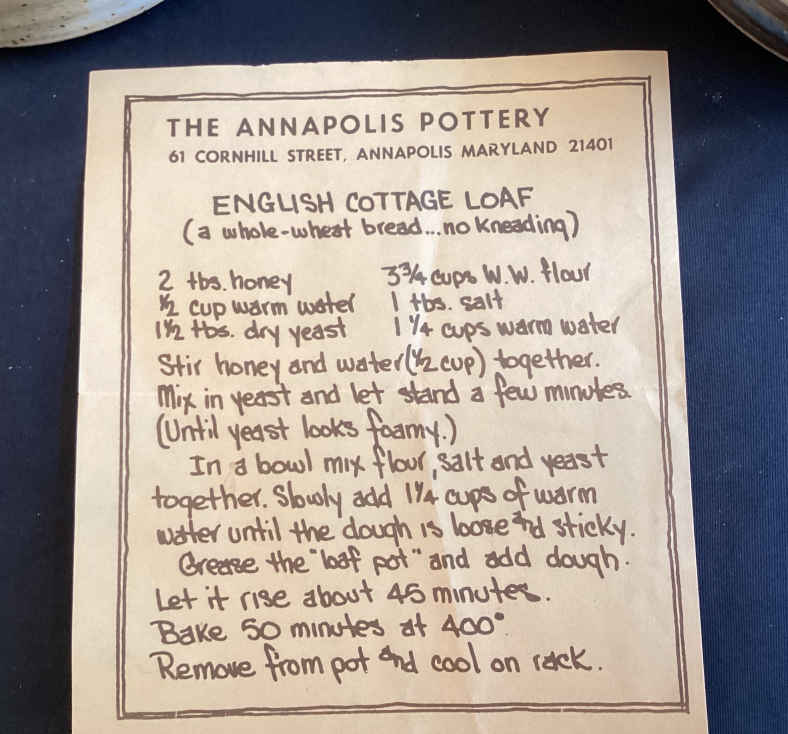 THE ANNAPOLIS POTTERY
61 CORNHILL STREET, ANNAPOLIS MARYLAND 21401
ENGLISH COTTAGE LOAF
(a whole-wheat bread...no kneading)
2 tbs. honey 3¾ cups W.W. flour
½ cup warm water 1 tbs. salt
1½ tbs. dry yeast 1 ¼ cups warm water
Stir honey and water (½ cup) together.
Mix in yeast and let stand a few minutes.
(Until yeast looks foamy.)
In a bowl mix flour, salt and yeast
together. Slowly add 1¼ cups of warm
water until the dough is loose and sticky.
Grease the "loaf pot" and add dough.
Let it rise about 45 minutes.
Bake 50 minutes at 400°.
Remove from pot and cool on rack.